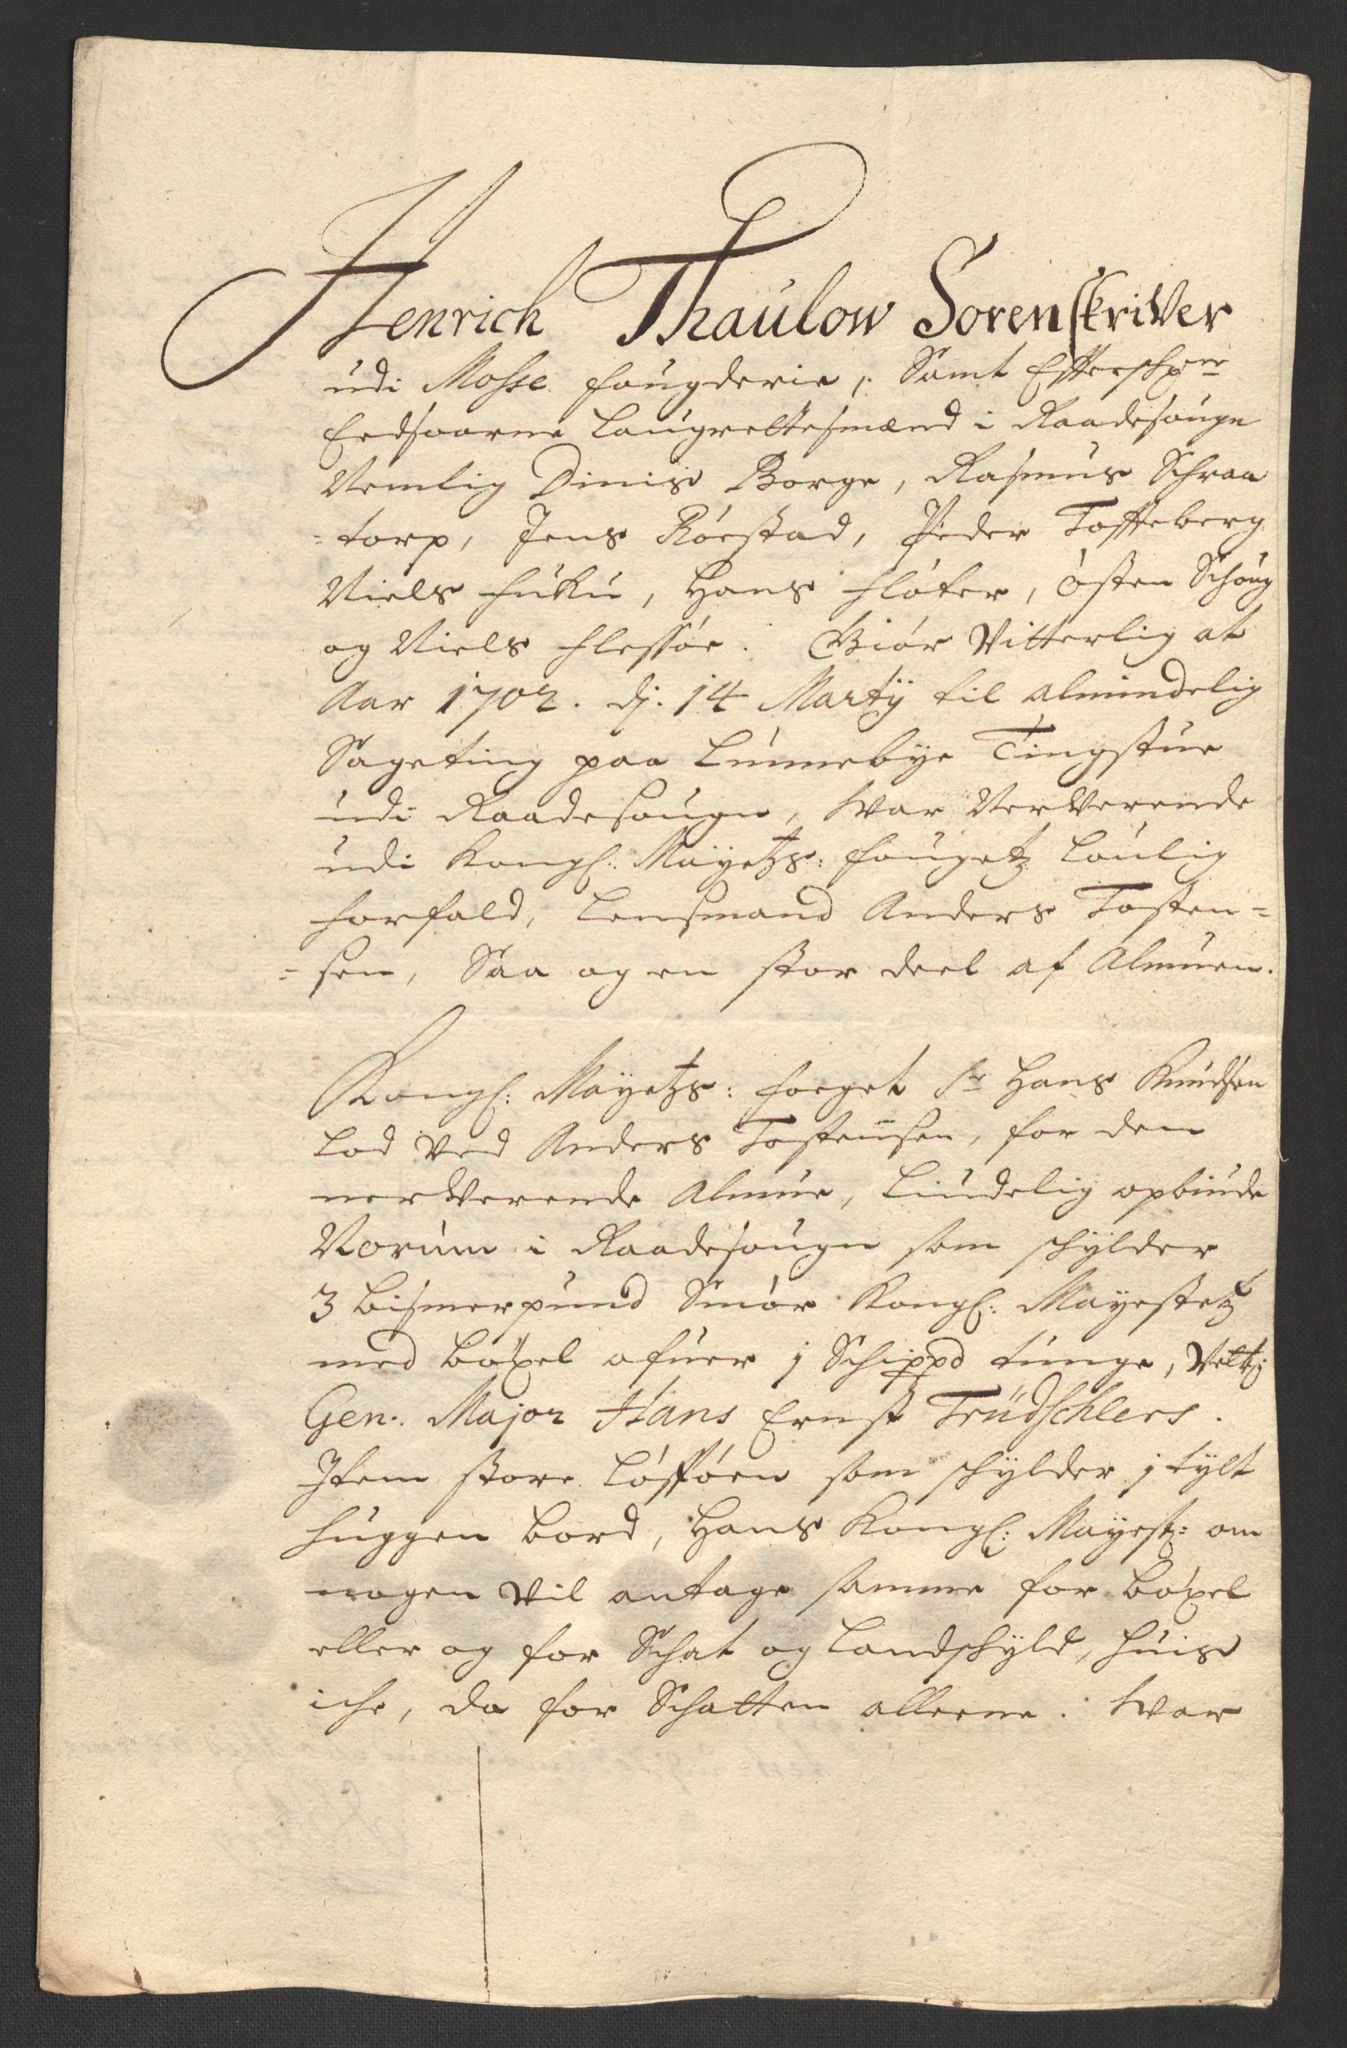 Henrich Thaulow Sorenskriver
udi Mosse fougderie, Samt Effterschrne
Eedsoorne Laugrettesmænd i Raadesougn
Nemlig Dinis Borge, Rasmus Schraa
-torp, Jens Röestad, Peder Toffteberg
Niels Huku, Hans Flöter, Östen Schoug
og Niels Flessöe. Giör Vitterlig at
Aar 1702. dj. 14 Martij til almindelig
Sageting paa Lunnebye Tingstue
udi Raadesougn, War Nerverende
udi Kongl: Mayetzs: fougetz Loulig
forfald, Lensmand Anders Tosten-
-sen, Saa og en stor deel af Almuen.
Kongl: Mayetzs: foeget Sr Hans Knudsen
Lod Ved Anders Tostensen, for den
nerverende Almue, Liudelig opbiude
Norum i Raadesougn som schylder
3 Bismerpund Smör Kongl: Mayestetz
med Böxel ofuer 1 Schippd tunge,
Gen. Major Hans Ernst Trüdschlers.
Item store Lössöen som schylder 1 tylt
huggen bord, Hans Kongl: Mayestz: om
nogen Vil antage samme for Böxel
eller og for Schat og Landschyld, huis
iche, da for Schatten alleene. War